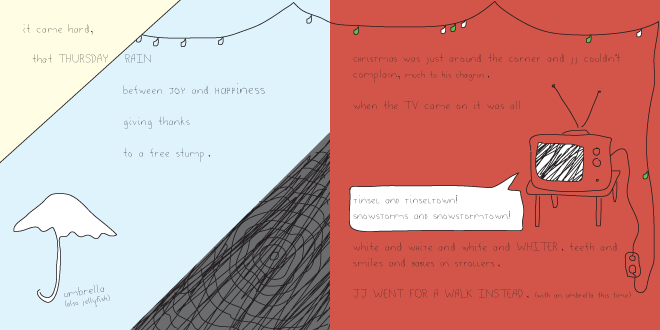 it came hard,
that THURSDAY RAIN
between JOY and HAPPINESS
giving thanks
to a tree stump.
umbrella
(also jellyfish)
christmas was just around the corner and jj couldn't
complain, much to his chagrin.
when the TV came on it was all
TINSEL AND TINSELTOWN!
SNOWSTORMS AND SNOWSTORMTOWN!
white and WHITE and white and WHITER. teeth and
smiles and BABIES in strollers.
JJ WENT FOR A WALK INSTEAD. (with an umbrella this time)